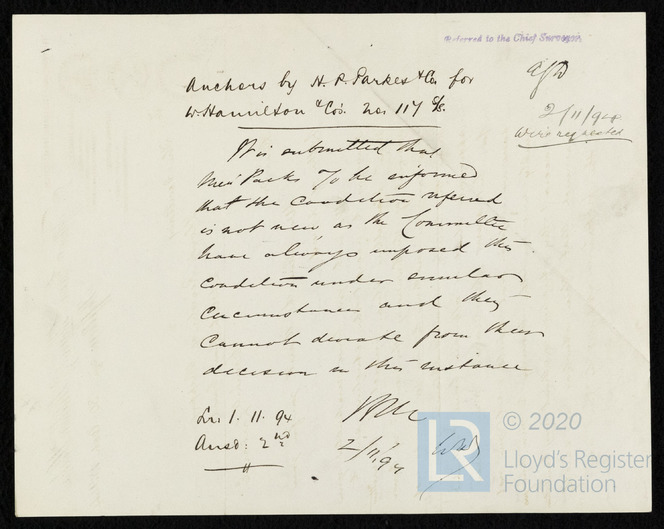 Referred to the Chief Surveyor
Anchors by H. P. Parkes & Co. for
W. Hamilton & Co's. No. 117 S/S.
2/11/94
were requested
It is submitted that
Mess Parks To be informed
that the Condition referred
is not new as the Committee
have always imposed this
Condition under similar
Circumstances and they
Cannot deviate from their
decision in this instance
Lr. 1.11.94
Ansd: 2nd
2/11/94
© 2020
LR
Lloyd's Register
Foundation